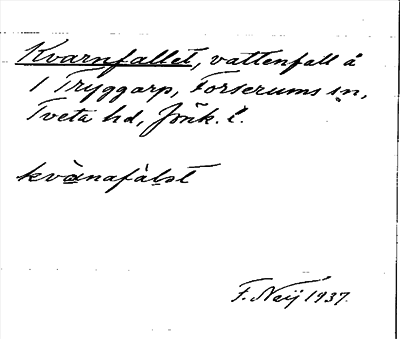 Kvarnfallet, vattenfall å
1 Tryggarp, Forserums sn,
Tveta hd, Jönk. l.
kvànafálət
F. Neij 1937.